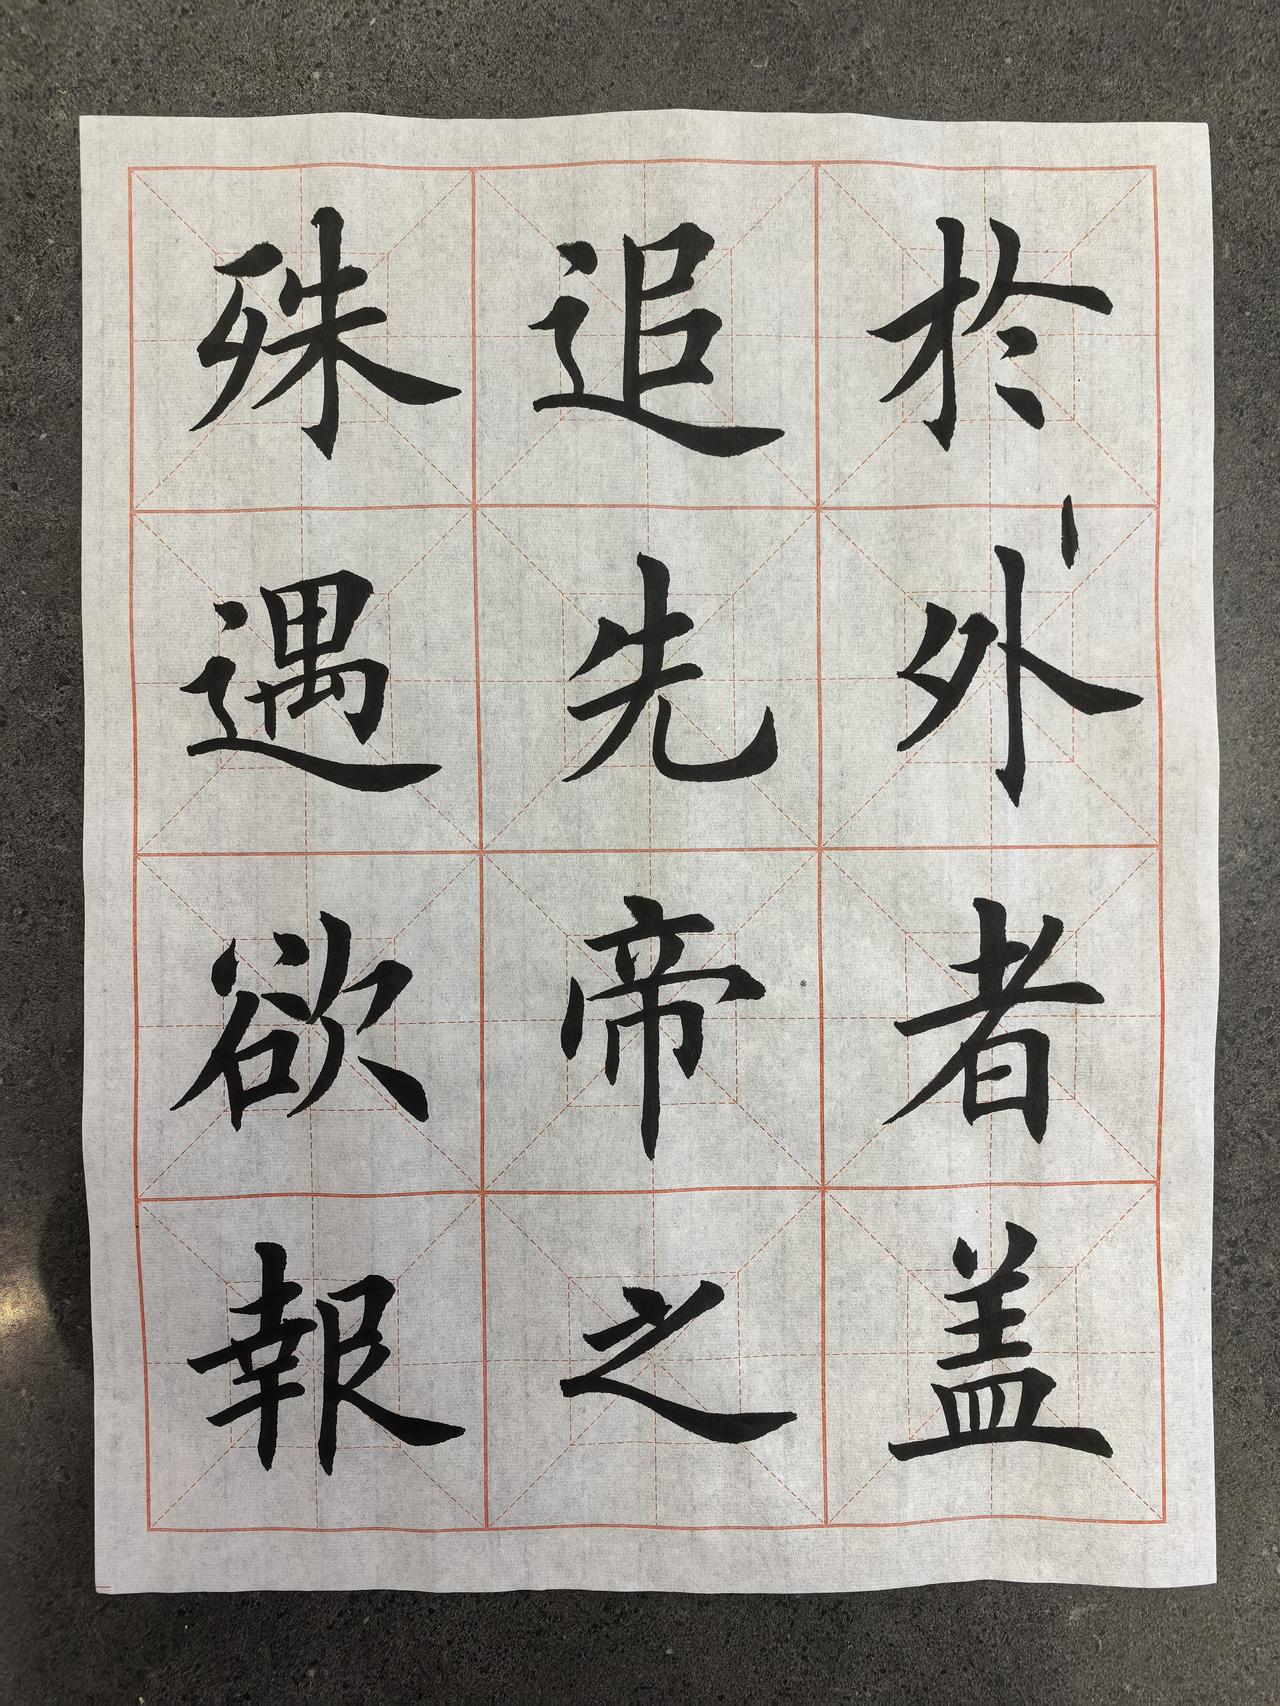 於外者盖
追先帝之
殊遇欲報